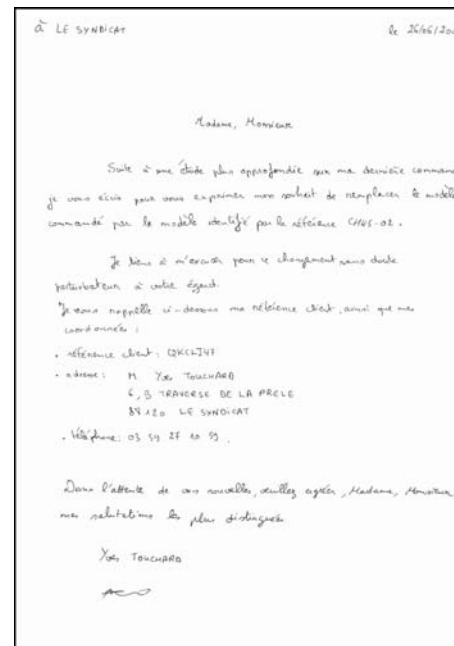 à LE SYNDICAT le 26/06/200
Madame, Monsieur
Suite à une étude plus approfondie sur ma dernière comman
je vous écris pour vous exprimer mon souhait de remplacer le modèle
commandé par le modèle identifié par la référence CH45-02.
Je tiens à m'excuser pour ce changement sans doute
perturbateur à votre égard.
Je vous rappelle ci-dessous ma référence client, ainsi que mes
coordonnées :
• référence client :
• adresse : M. Yves TOUCHARD
6, B TRAVERSE DE LA PRELE
88120 LE SYNDICAT
• téléphone : 03 59 27 10 59.
Dans l'attente de vos nouvelles, veuillez agréer, Madame, Monsieur
mes salutations les plus distinguées
Yves TOUCHARD